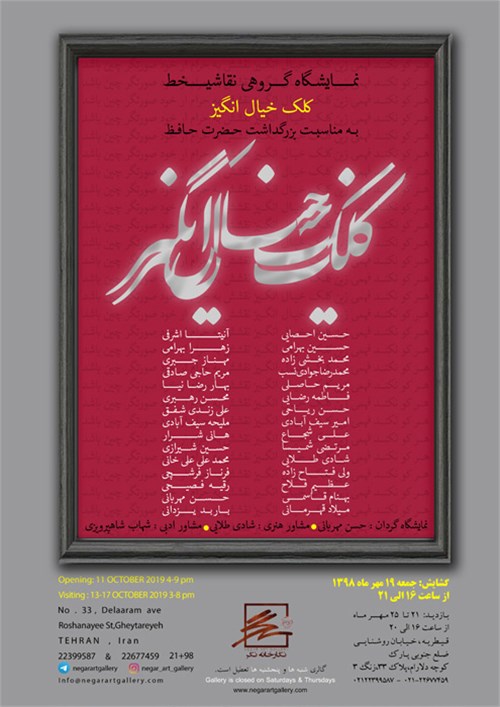 نمایشگاه گروهی نقاشیخط
کلک خیال انگیز
به مناسبت بزرگداشت حضرت حافظ
کلک خیال انگیز
حسین احصایی
حسین بهرامی
محمد بخشی زاده
محمدرضاجوادی‌نسب
مریم حاصلی
فاطمه رضایی
حسن ریاحی
امیر سیف آبادی
علی شجاع
مرتضی شیبا
شادی طلایی
ولی فتاح زاده
عظیم فلاح
بهنام قاسمی
میلاد قهرمانی
آنیتا اشرفی
زهرا بهرامی
مهناز جبری
مریم حاجی صادقی
بهار رضا نیا
محسن رهبری
علی زندی شفق
ملیحه سیف آبادی
هانی شرار
حسین شیرازی
محمد علی علی خانی
فرناز فرشچی
رقیه فصیحی
حسن مهربانی
باربد یزدانی
نمایشگاه گردان : حسن مهربانی • مشاور هنری : شادی طلایی • مشاور ادبی : شهاب شاهپرویزی
Opening: 11 OCTOBER 2019 4-9 pm
Visiting : 13-17 OCTOBER 2019 3-8 pm
No . 33 , Delaaram ave
Roshanayee St,Gheytareyeh
TEHRAN , Iran
22399587 & 22677459 21+98
negarartgallery negar_art_gallery
Info@negarartgallery.com
گشایش: جمعه ۱۹ مهر ماه ۱۳۹۸
از ساعت ۱۶ الی ۲۱
بازدید: ۲۱ تا ۲۵ مهر ماه
از ساعت ۱۶ الی ۲۰
قیطریه، خیابان روشنایی
ضلع جنوبی پارک
کوچه دلارام،پلاک ۳۳،زنگ ۳
۰۲۱-۲۲۶۷۷۴۵۹ - ۰۲۱۲۲۳۹۹۵۸۷
نگارخانه نگر
گالری شنبه ها و پنجشنبه ها تعطیل است.
Gallery is closed on Saturdays & Thursdays
www.negarartgallery.com